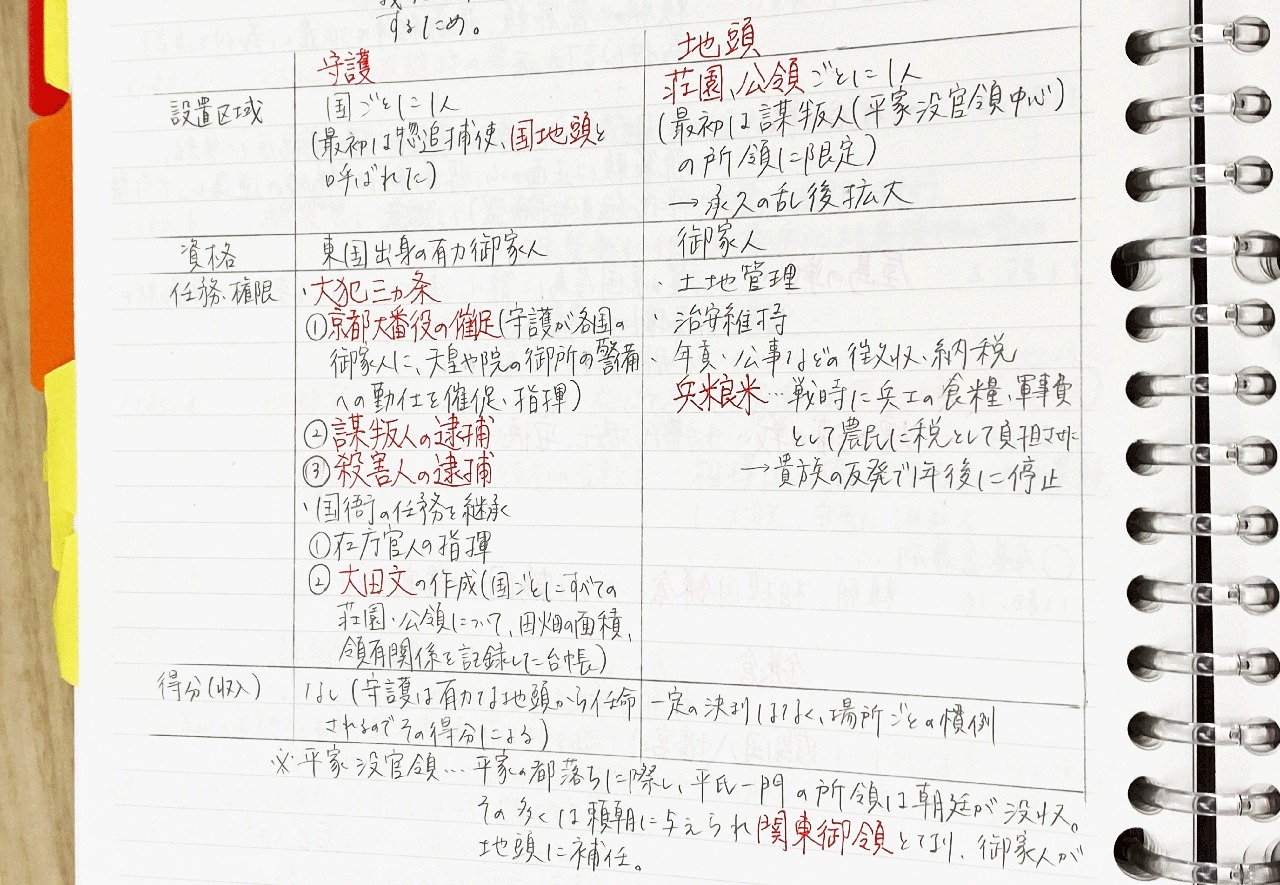 するため。
守護
地頭
設置区域
国ごとに1人
(最初は惣追捕使、国地頭と
呼ばれた)
荘園、公領ごとに1人
(最初は謀叛人(平家没官領中心)
の所領に限定)
→承久の乱後拡大
資格
東国出身の有力御家人
御家人
任務・権限
・大犯三カ条
①京都大番役の催促(守護が各国の
御家人に、天皇や院の御所の警備
への勤仕を催促、指揮)
②謀叛人の逮捕
③殺害人の逮捕
・国衙の任務を継承
①在庁官人の指揮
②大田文の作成(国ごとにすべての
荘園・公領について、田畑の面積、
領有関係を記録した台帳)
・土地管理
・治安維持
・年貢・公事などの徴収、納税
兵粮米…戦時に兵士の食糧、軍事費
として農民に税として負担させた
→貴族の反発で1年後に停止
得分(収入)
なし(守護は有力な地頭から任命
されるのでその得分による)
一定の決まりはなく、場所ごとの慣例
※平家没官領…平家の都落ちに際し、平氏一門の所領は朝廷が没収。
その多くは頼朝に与えられ関東御領となり、御家人が
地頭に補任。